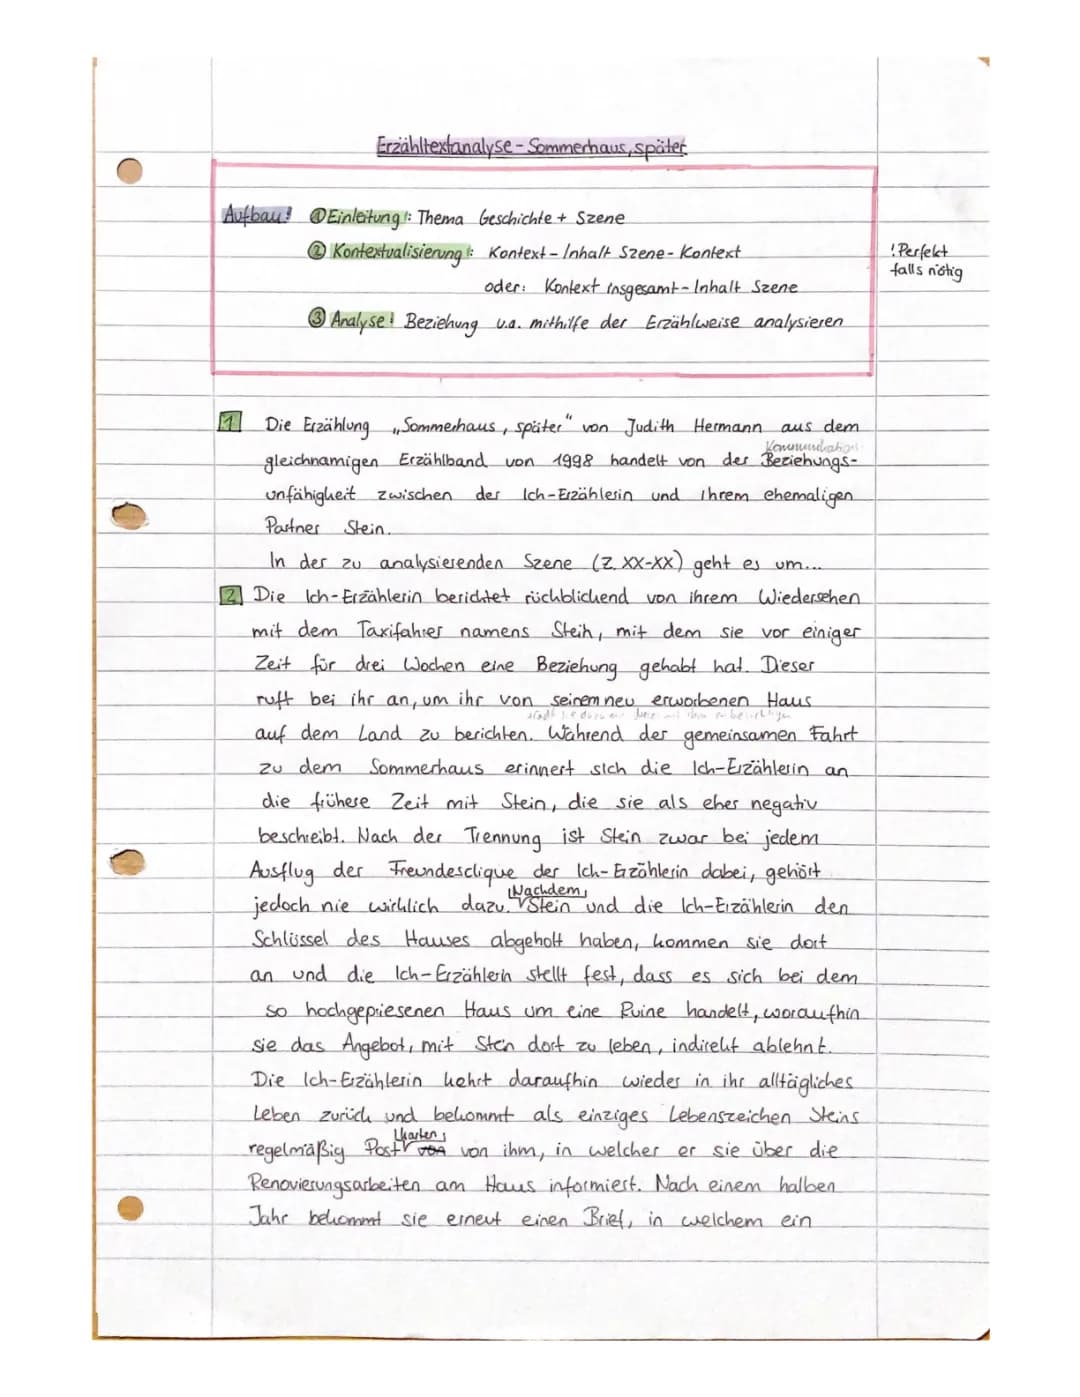 Erzähltextanalyse - Sommerhaus, später
Aufbau! ① Einleitung!: Thema Geschichte + Szene
② Kontextualisierung!: Kontext - Inhalt Szene - Kontext
! Perfekt
falls nötig
oder: Kontext insgesamt - Inhalt Szene
③ Analyse! Beziehung u.a. mithilfe der Erzählweise analysieren
1 Die Erzählung „Sommerhaus, später" von Judith Hermann aus dem
Kommunikations-
gleichnamigen Erzählband von 1998 handelt von der Beziehungs-
unfähigkeit zwischen der Ich-Erzählerin und ihrem ehemaligen
Partner Stein.
In der zu analysierenden Szene (Z. XX-XX) geht es um...
2 Die Ich-Erzählerin berichtet rückblickend von ihrem Wiedersehen
mit dem Taxifahrer namens Stein, mit dem sie vor einiger
Zeit für drei Wochen eine Beziehung gehabt hat. Dieser
ruft bei ihr an, um ihr von seinem neu erworbenen Haus
auf dem Land zu berichten. Während der gemeinsamen Fahrt
zu dem Sommerhaus erinnert sich die Ich-Erzählerin an
die frühere Zeit mit Stein, die sie als eher negativ
beschreibt. Nach der Trennung ist Stein zwar bei jedem
Ausflug der Freundesclique der Ich-Erzählerin dabei, gehört
Nachdem
jedoch nie wirklich dazu. Stein und die Ich-Erzählerin den
Schlüssel des Hauses abgeholt haben, kommen sie dort
an und die Ich-Erzählerin stellt fest, dass es sich bei dem
so hochgepriesenen Haus um eine Ruine handelt, woraufhin
sie das Angebot, mit Stein dort zu leben, indirekt ablehnt.
Die Ich-Erzählerin kehrt daraufhin wieder in ihr alltägliches
Leben zurück und bekommt als einziges Lebenszeichen Steins
karten
regelmäßig Post von ihm, in welcher er sie über die
Renovierungsarbeiten am Haus informiert. Nach einem halben
Jahr bekommt sie erneut einen Brief, in welchem ein